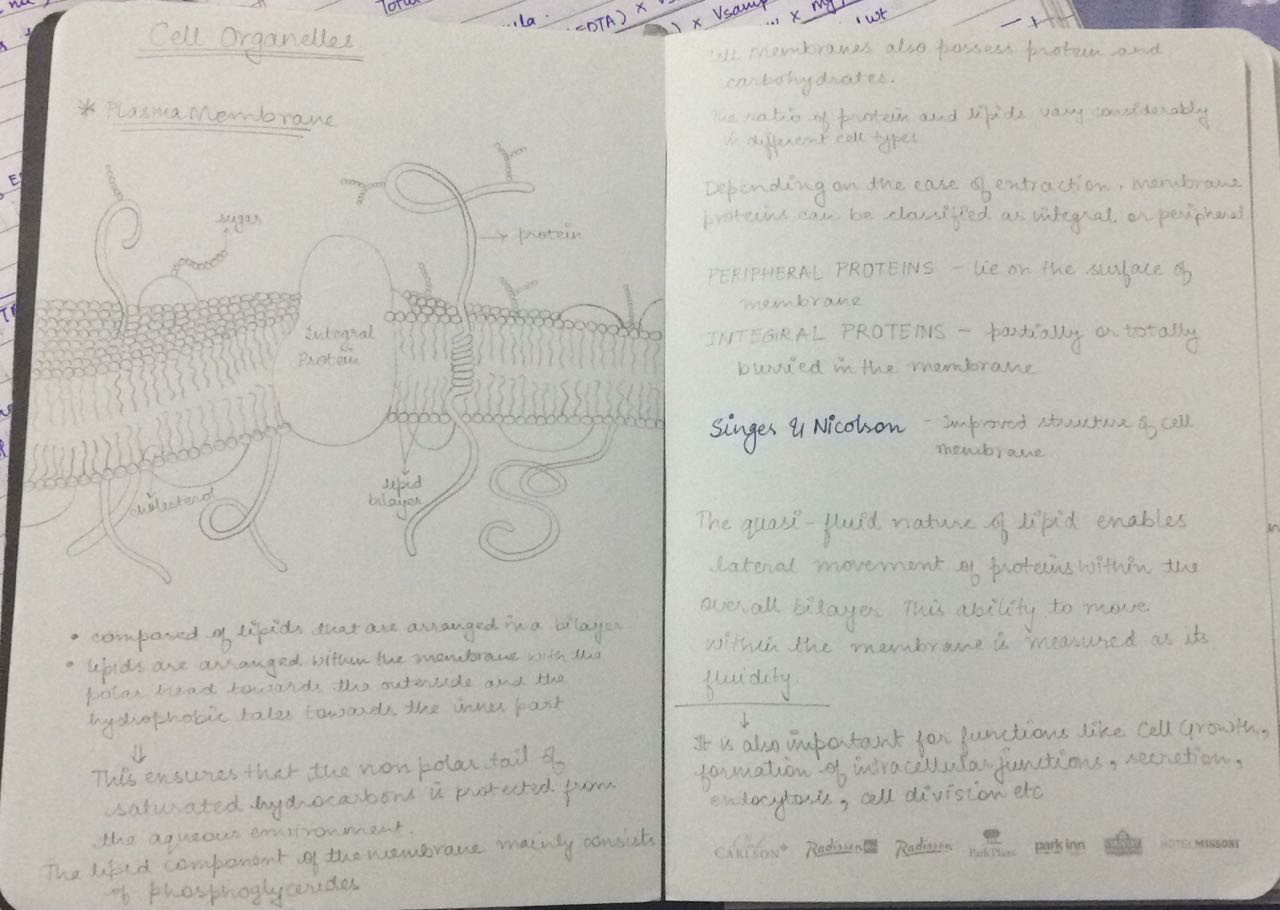 Total
EDTA) × V
) × Vsamp
× mg
wt
Cell Organelles
* Plasma Membrane
sugar
→ protein
Integral
Protein
cholesterol
lipid
bilayer
• compared of lipids that are arranged in a bilayer
• lipids are arranged within the membrane with the
polar head towards the outerside and the
hydrophobic tales towards the inner part
⇓
This ensures that the non polar tail of
saturated hydrocarbons is protected from
the aqueous environment.
The lipid component of the membrane mainly consists
of phosphoglycerides
membranes also possess protein and
carbohydrates.
The ratio of protein and lipids vary considerably
in different cell types
Depending on the ease of extraction, membrane
proteins can be classified as integral or peripheral
PERIPHERAL PROTEINS – lie on the surface of
membrane
INTEGRAL PROTEINS – partially or totally
burried in the membrane
Singes & Nicolson – Improved structure of cell
membrane
The quasi-fluid nature of lipid enables
lateral movement of proteins within the
overall bilayer. This ability to move
within the membrane is measured as its
fluidity.
↓
It is also important for functions like cell Growth,
formation of intracellular junctions, secretion,
endocytosis, cell division etc
CARLSON Radisson Radisson Park Plaza park inn HOTEL MISSONI